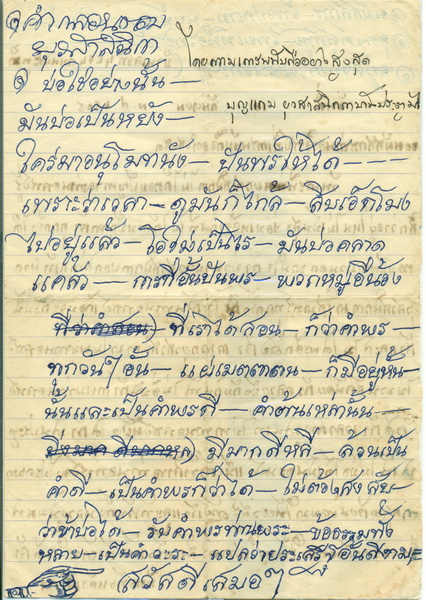 คำสอนของ
โดยความเคารพนับถืออย่างสูงสุด
๑ บ่อใช่อย่างนั้น —
มันบ่อเป็นหยัง —
ใคร่มาอนุโมทนัง — ปันพรให้ได้ — — — —
เพราะว่าเวลา — ดูมันก็ใกล้ — สิบเอ็ดโมง
ไปอยู่แล้ว — โอ๋ขมเป็นไร — มันบ่อคลาด
แคล้ว — การที่อั้นปันพร — พวกหมู่อื่นยัง
ที่ว่าคำสอน) ที่เราได้สอน — ก็ว่าคำพร —
ทุกวันๆ อั้น — แผ่เมตตาตาน — ก็มีอยู่หั้น —
นั้นแหละเป็นคำพรดี — คำอันเหล่านั้น —
มีมากดีหลี — ล้วนเป็น
คำดี — เป็นคำพรก็ว่าได้ — ไม่ต้องสงสัย —
ว่าข้าบ่อได้ — รับคำพรท่านพระ — ข้อธรรมทั้ง
หลาย — เป็นคำวะระ — แปลว่าประเสริฐอันดีงาม
สวัสดีเสมอๆ